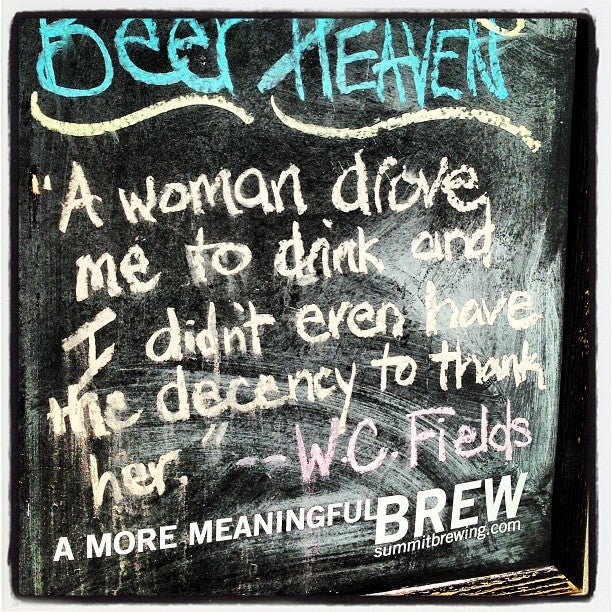 Beer HEAVEN
"A woman drove
me to drink and
I didn't even have
the decency to thank
her." --W.C. Fields
A MORE MEANINGFUL BREW
summitbrewing.com